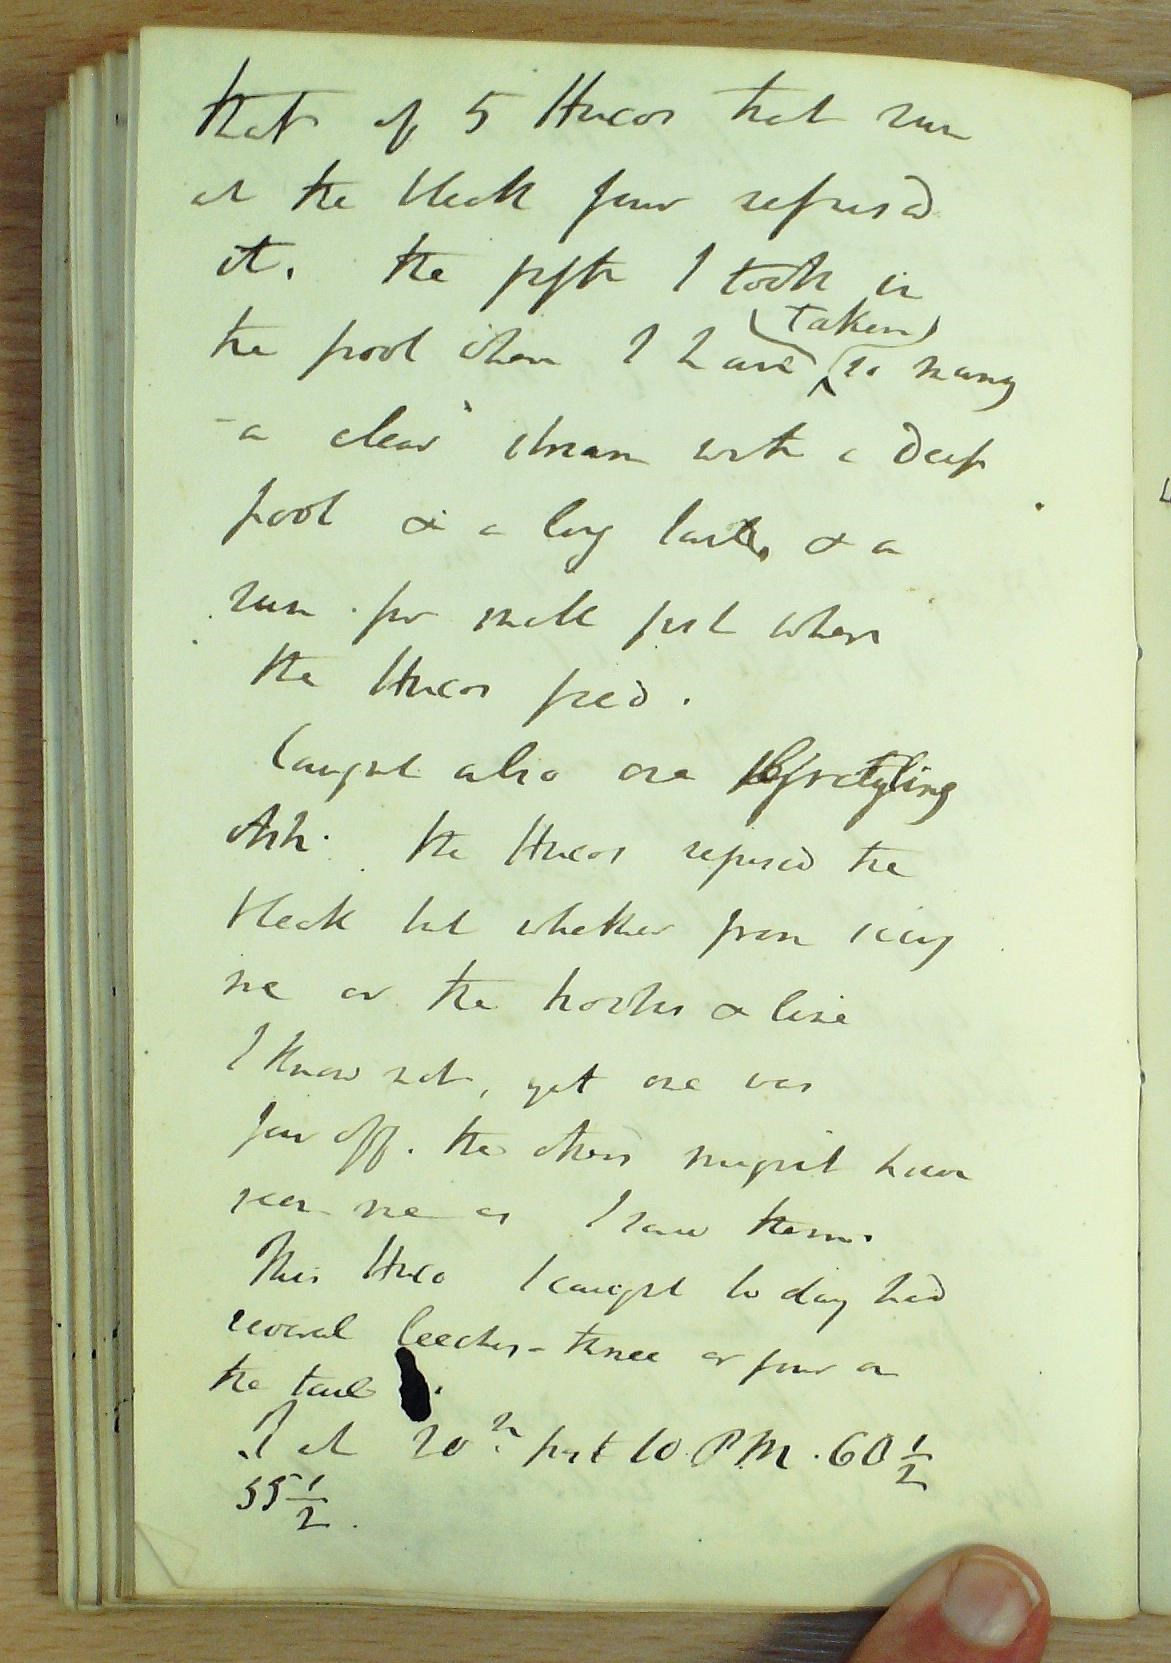 that of 5 Hucos that run
at the bleak four refused
it. the fifth I took in
the pool where I have (taken) so many
- a clear stream with a deep
pool & a long & a
run for small fish where
the Hucos feed.
Caught also one grayling
Ash. the Hucos refused the
bleak but whether from seeing
me or the hooks & line
I know not, yet one was
far off. the others might have
seen me as I saw them.
This Huco I caught to day had
several leeches - three or four on
the tail.
T at 20m past 10 PM. 60 1/2
55 1/2.